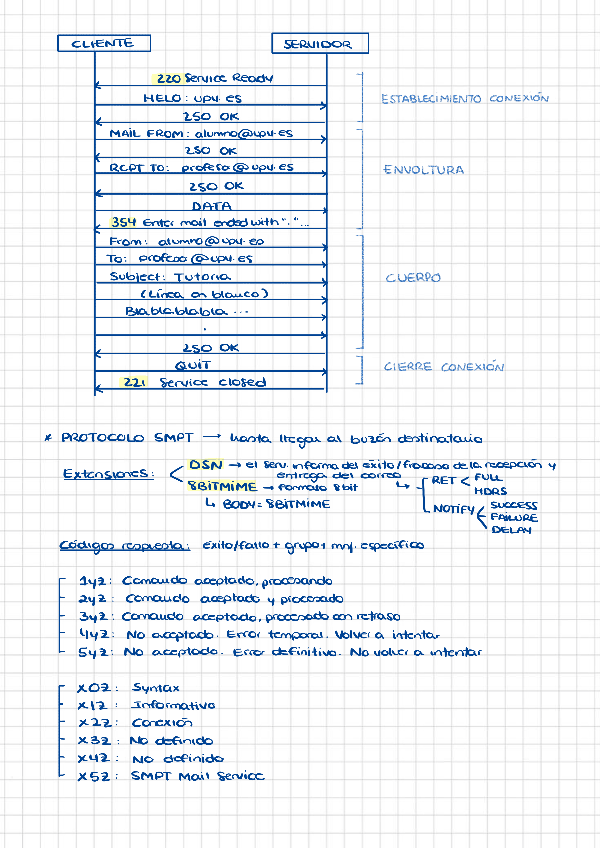 CLIENTE SERVIDOR
220 Service Ready
HELO: upv.es
ESTABLECIMIENTO CONEXIÓN
250 OK
MAIL FROM: alumno@upv.es
250 OK
RCPT TO: profesor@upv.es
ENVOLTURA
250 OK
DATA
354 Enter mail ended with "."...
From: alumno@upv.es
To: profesor@upv.es
Subject: Tutoria
CUERPO
(Línea en blanco)
Bla bla blabla ...
.
250 OK
QUIT
CIERRE CONEXIÓN
221 Service closed
* PROTOCOLO SMPT → hasta llegar al buzón destinatario
Extensiones: DSN → el serv. informa del éxito/fracaso de la recepción y
entrega del correo
8BITMIME → formato 8bit
↳ RET < FULL
HDRS
↳ BODY = 8BITMIME
NOTIFY < SUCCESS
FAILURE
DELAY
Códigos respuesta: éxito/fallo + grupo + msj. específico
1yz: Comando aceptado, procesando
2yz: Comando aceptado y procesado
3yz: Comando aceptado, procesado con retraso
4yz: No aceptado. Error temporal. Volver a intentar
5yz: No aceptado. Error definitivo. No volver a intentar
X0Z: Syntax
X1Z: Informativo
X2Z: Conexión
X3Z: No definido
X4Z: No definido
X5Z: SMPT Mail Service